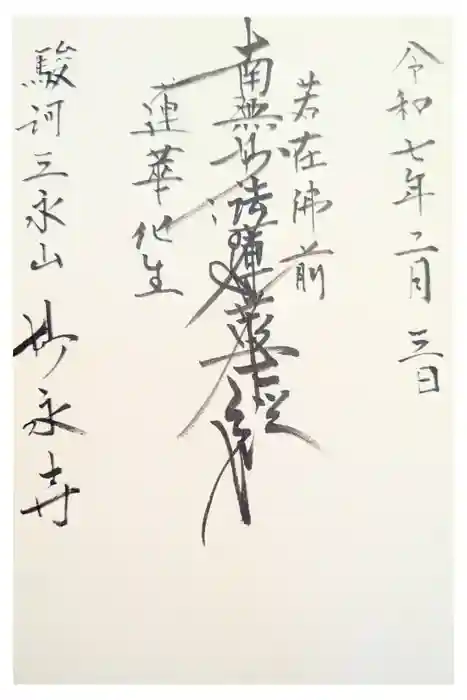 令和七年二月三日
若在佛前
南無妙法蓮華経
蓮華化生
駿河三永山
妙永寺